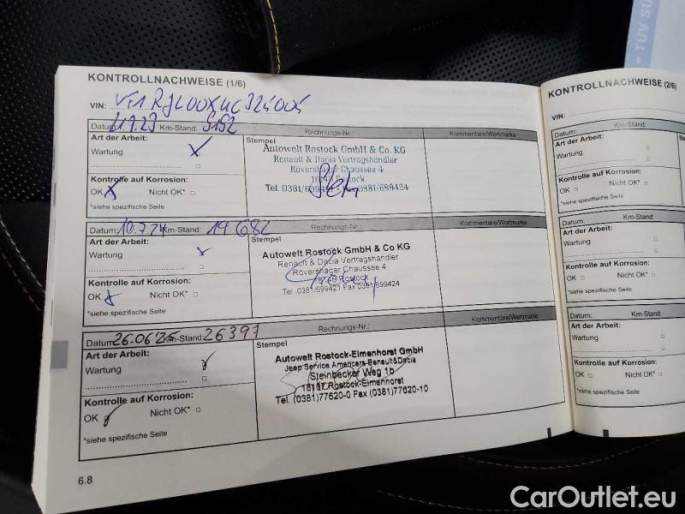 KONTROLLNACHWEISE (1/6)
VIN:
Datum: Km-Stand: Rechnungs-Nr.: Kommentare/Wortmarke
Art der Arbeit: Stempel
Wartung X
Autowelt Rostock GmbH & Co. KG
Renault & Dacia Vertragshändler
Rövershäger Chaussee 4
Rostock
Tel. 0381/699421 Fax 0381/699424
Kontrolle auf Korrosion:
OK X Nicht OK* □
*siehe spezifische Seite
Datum: 10.7.24 Km-Stand: 19682 Rechnungs-Nr.: Kommentare/Wortmarke
Art der Arbeit: Stempel
Wartung X
Autowelt Rostock GmbH & Co KG
Renault & Dacia Vertragshändler
Rövershäger Chaussee 4
Rostock
Tel. 0381/699421 Fax 0381/699424
Kontrolle auf Korrosion:
OK X Nicht OK* □
*siehe spezifische Seite
Datum: 26.06.25 Km-Stand: 26397 Rechnungs-Nr.: Kommentare/Wortmarke
Art der Arbeit: Stempel
Wartung
Autowelt Rostock-Elmenhorst GmbH
Jeep Service Americars-Renault&Dacia
Steinbecker Weg 1b
Rostock-Elmenhorst
Tel. (0381)77620-0 Fax (0381)77620-10
Kontrolle auf Korrosion:
OK Nicht OK* □
*siehe spezifische Seite
6.8
KONTROLLNACHWEISE (2/6)
VIN:
Datum: Km-Stand:
Art der Arbeit:
Wartung □
Kontrolle auf Korrosion:
OK □ Nicht OK* □
*siehe spezifische Seite
Datum: Km-Stand:
Art der Arbeit:
Wartung □
Kontrolle auf Korrosion:
OK □ Nicht OK* □
*siehe spezifische Seite
Datum: Km-Stand:
Art der Arbeit:
Wartung □
Kontrolle auf Korrosion:
OK □ Nicht OK* □
*siehe spezifische Seite
CarOutlet.eu